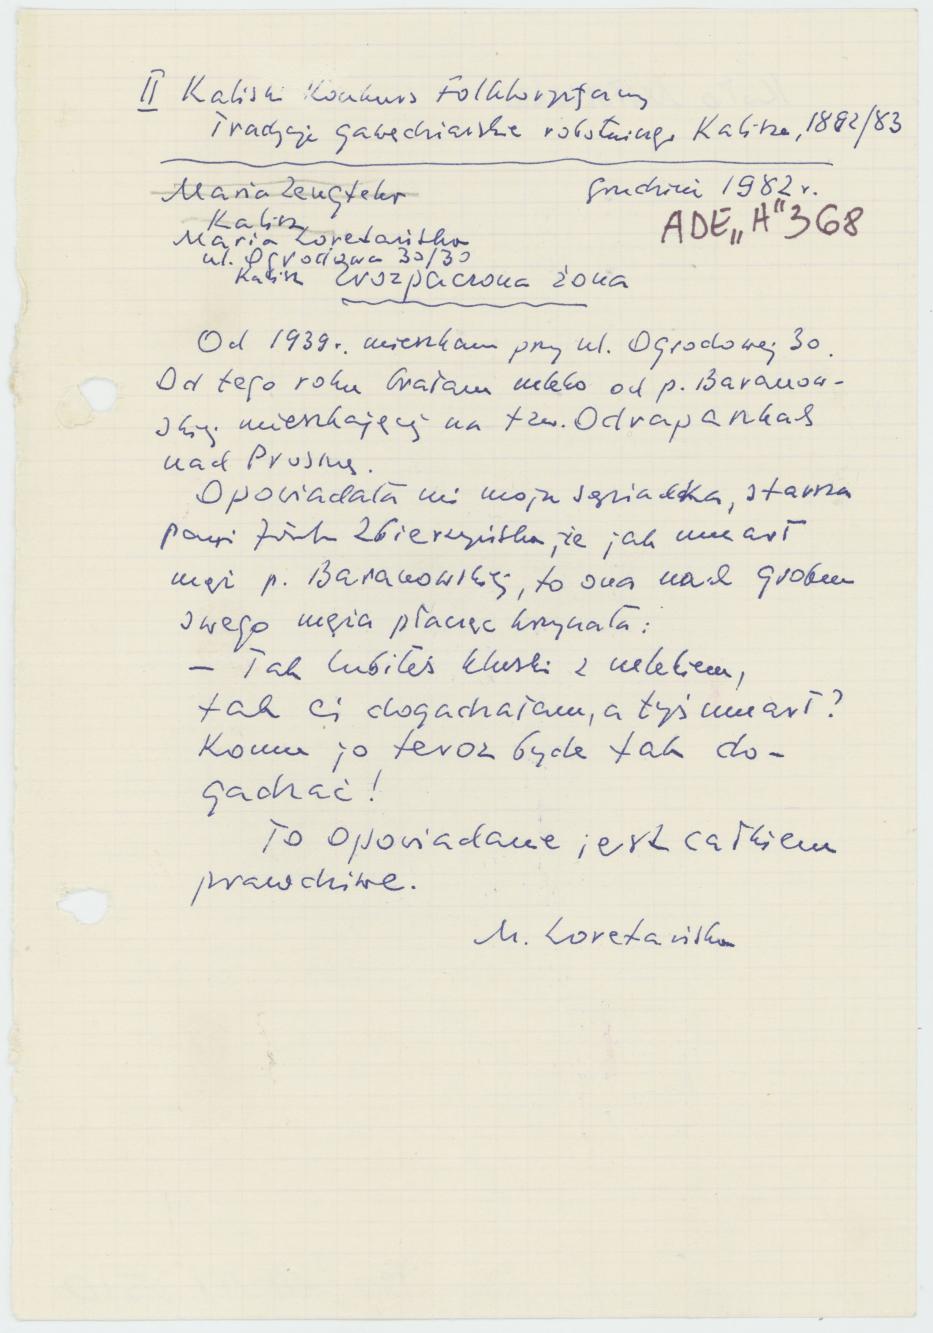 II Kaliski Konkurs Folklorystyczny
Tradycje gawędziarskie robotniczego Kalisza, 1882/83
Maria
grudzień 1982 r.
Kalisz
ADE „H" 368
Maria Loretańska
ul. Ogrodowa 30/30
Kalisz
Zrozpaczona żona
Od 1939 r. mieszkam przy ul. Ogrodowej 30.
Od tego roku brałam mleko od p. Baranow-
skiej mieszkającej na tzw. Odrapaskas
nad Prosną.
Opowiadała mi moja sąsiadka, starsza
pani Zbierzyńska, że jak umarł
mąż p. Baranowskiej, to ona nad grobem
swego męża płacząc krzyczała:
— Tak lubiłeś kluski z mlekiem,
tak ci dogadzałam, a tyś umarł?
Komu jo teroz byde tak do-
gadzać!
To opowiadanie jest całkiem
prawdziwe.
M. Loretańska